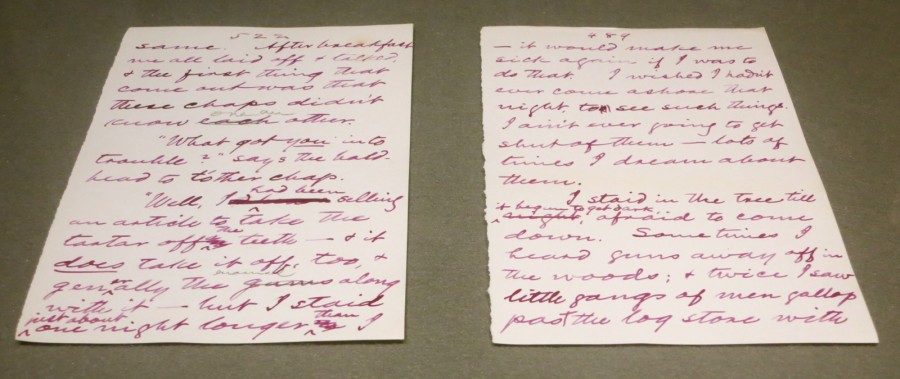 522
same. After breakfast
we all laid off & talked,
& the first thing that
come out was that
these chaps didn't
one an
know each other.
"What got you into
trouble?" says the bald-
head to t'other chap.
had been
"Well, I selling
an article to take the
the
tartar off teeth — & it
does take it off, too, &
enamel
generally the gums along
with it — but I staid
just about than
one night longer I
489
— it would make me
sick again if I was to
do that. I wished I hadn't
ever come ashore that
night to see such things.
I ain't ever going to get
shut of them — lots of
times I dream about
them.
I staid in the tree till
it begun to get dark
night, afraid to come
down. Sometimes I
heard guns away off in
the woods; & twice I saw
little gangs of men gallop
past the log store with